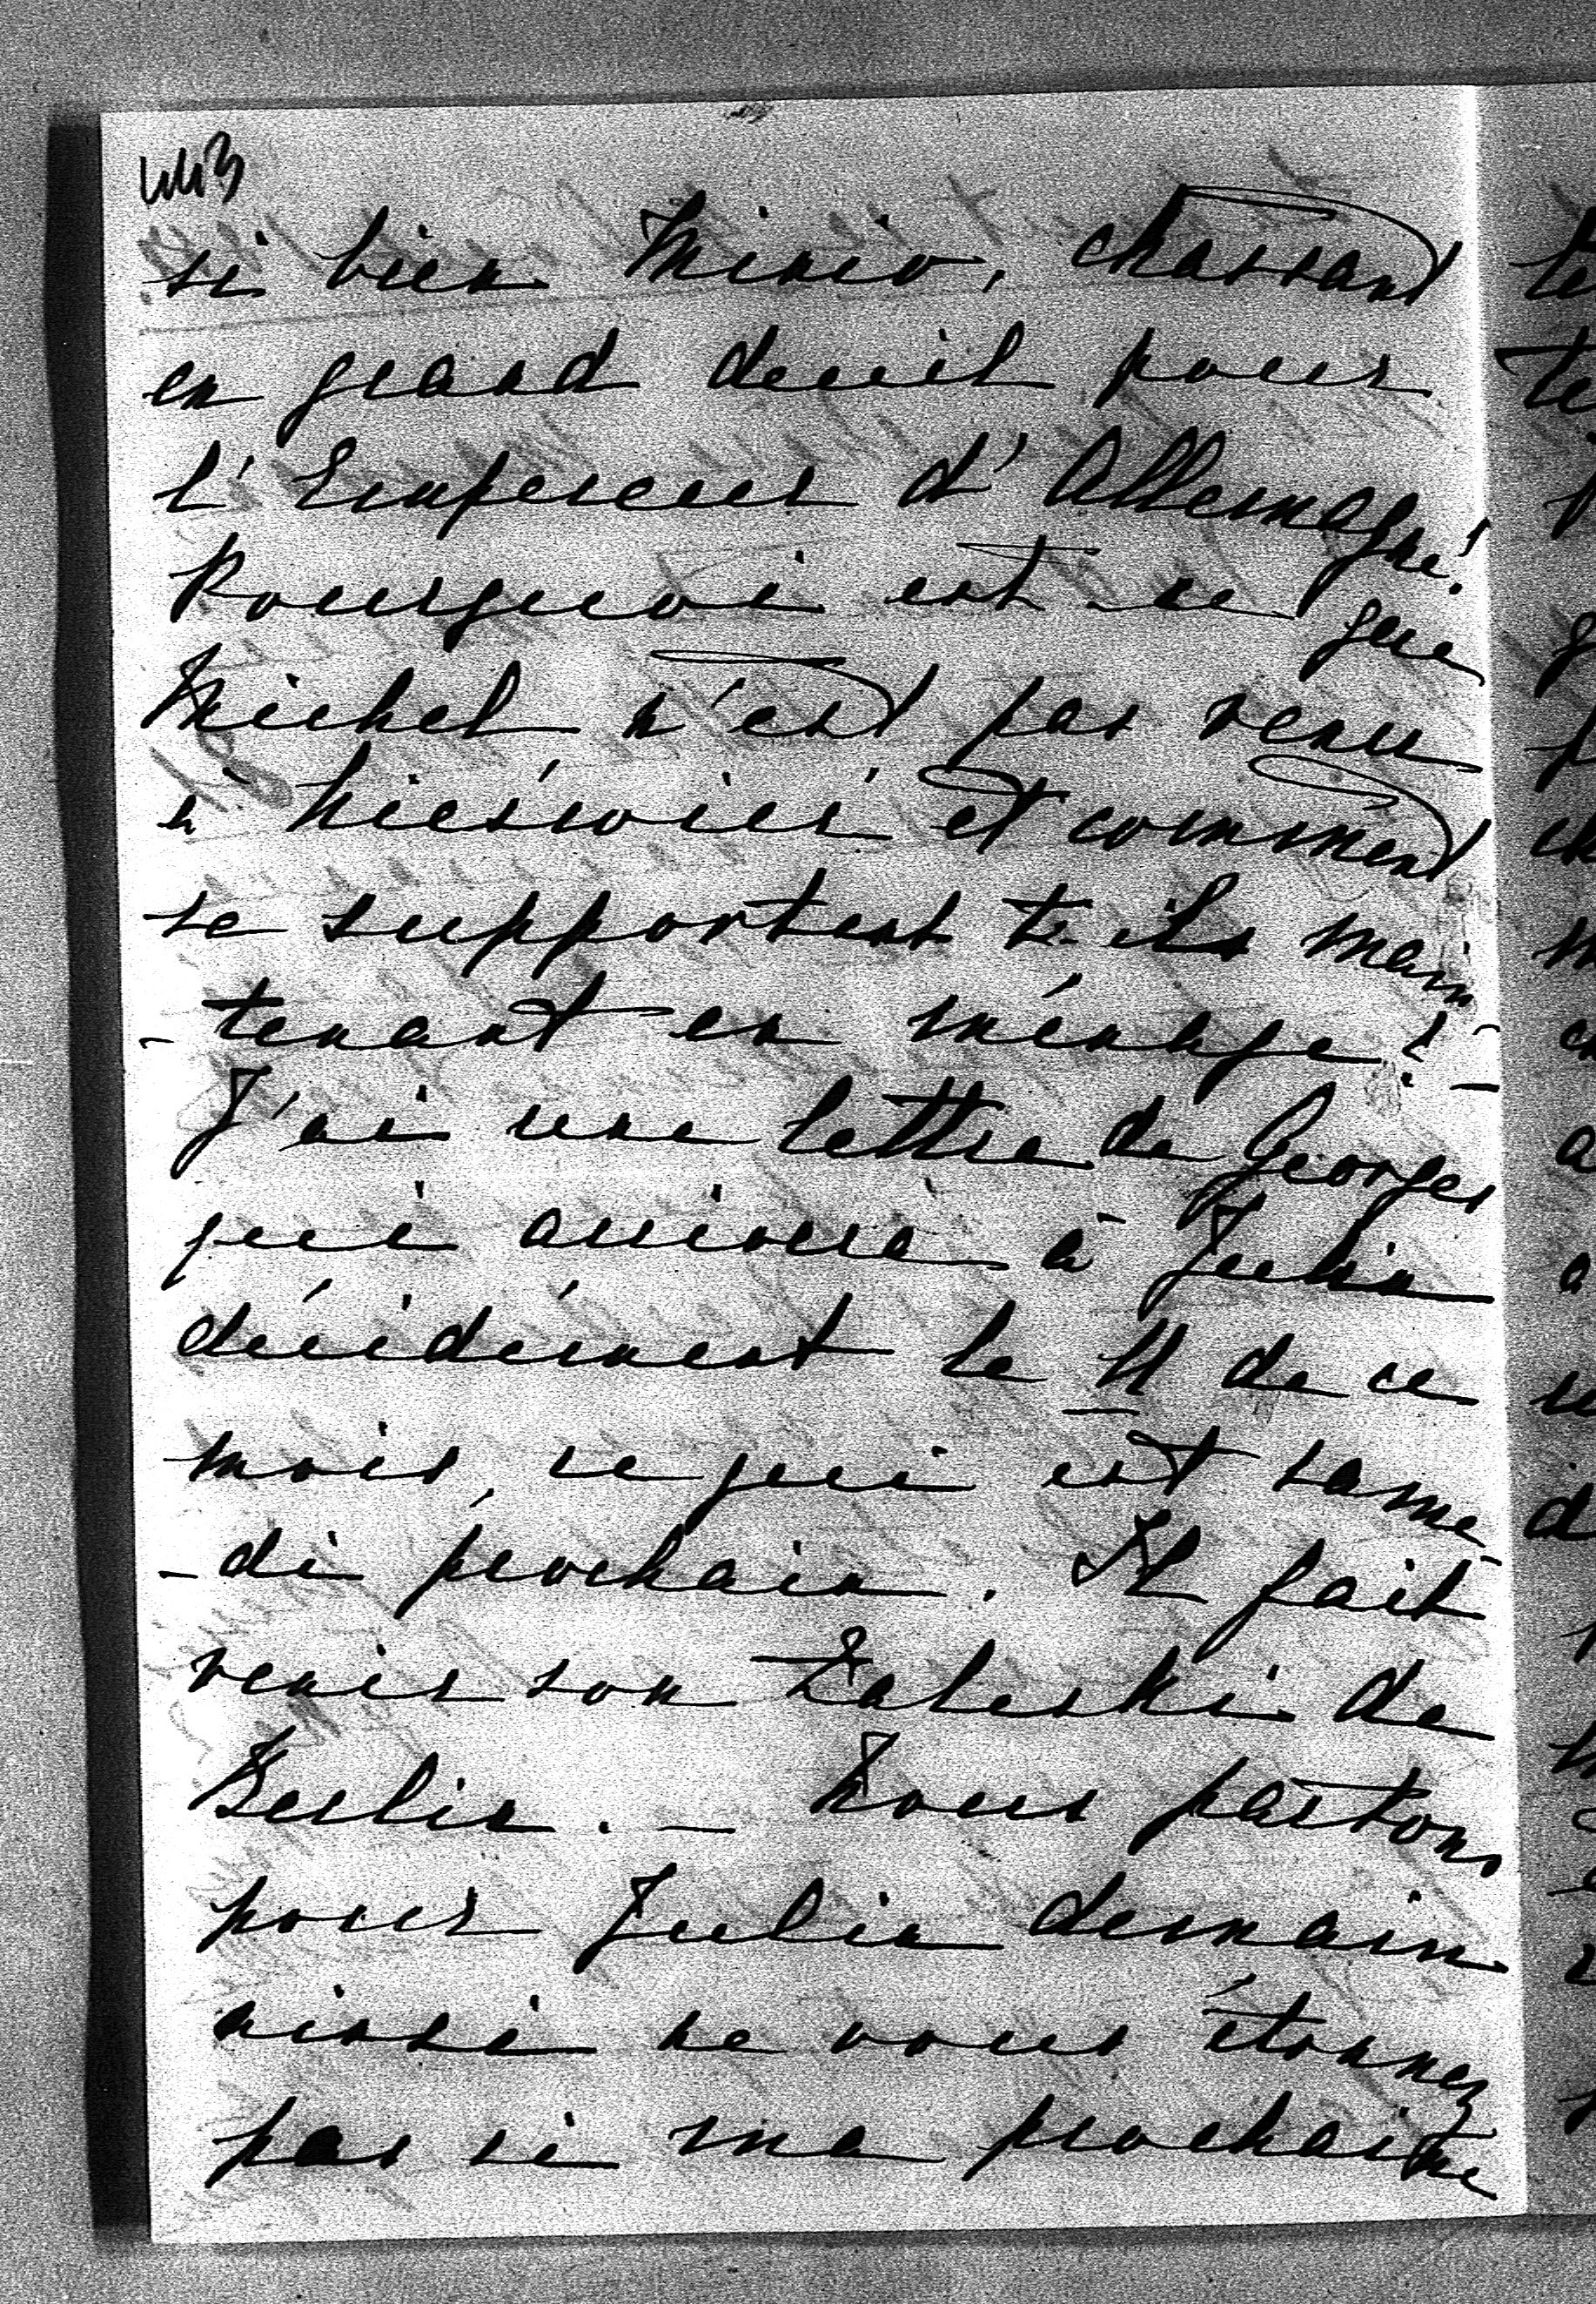 443
si bien Minio, chassant
en grand deuil pour
l'Empereur d'Allemagne!
Pourquoi est-ce que
Michel n'est pas venu
à et comment
se supportent t-ils main
-tenant en ménage? -
J'ai une lettre de Georges
qui arrivera à Julin
décidément le 11 de ce
mois, ce qui est same
-di prochain. Il fait
venir son Zaleski de
Berlin. - Nous partons
pour Julin demain
ainsi ne vous étonnez
pas si ma prochaine